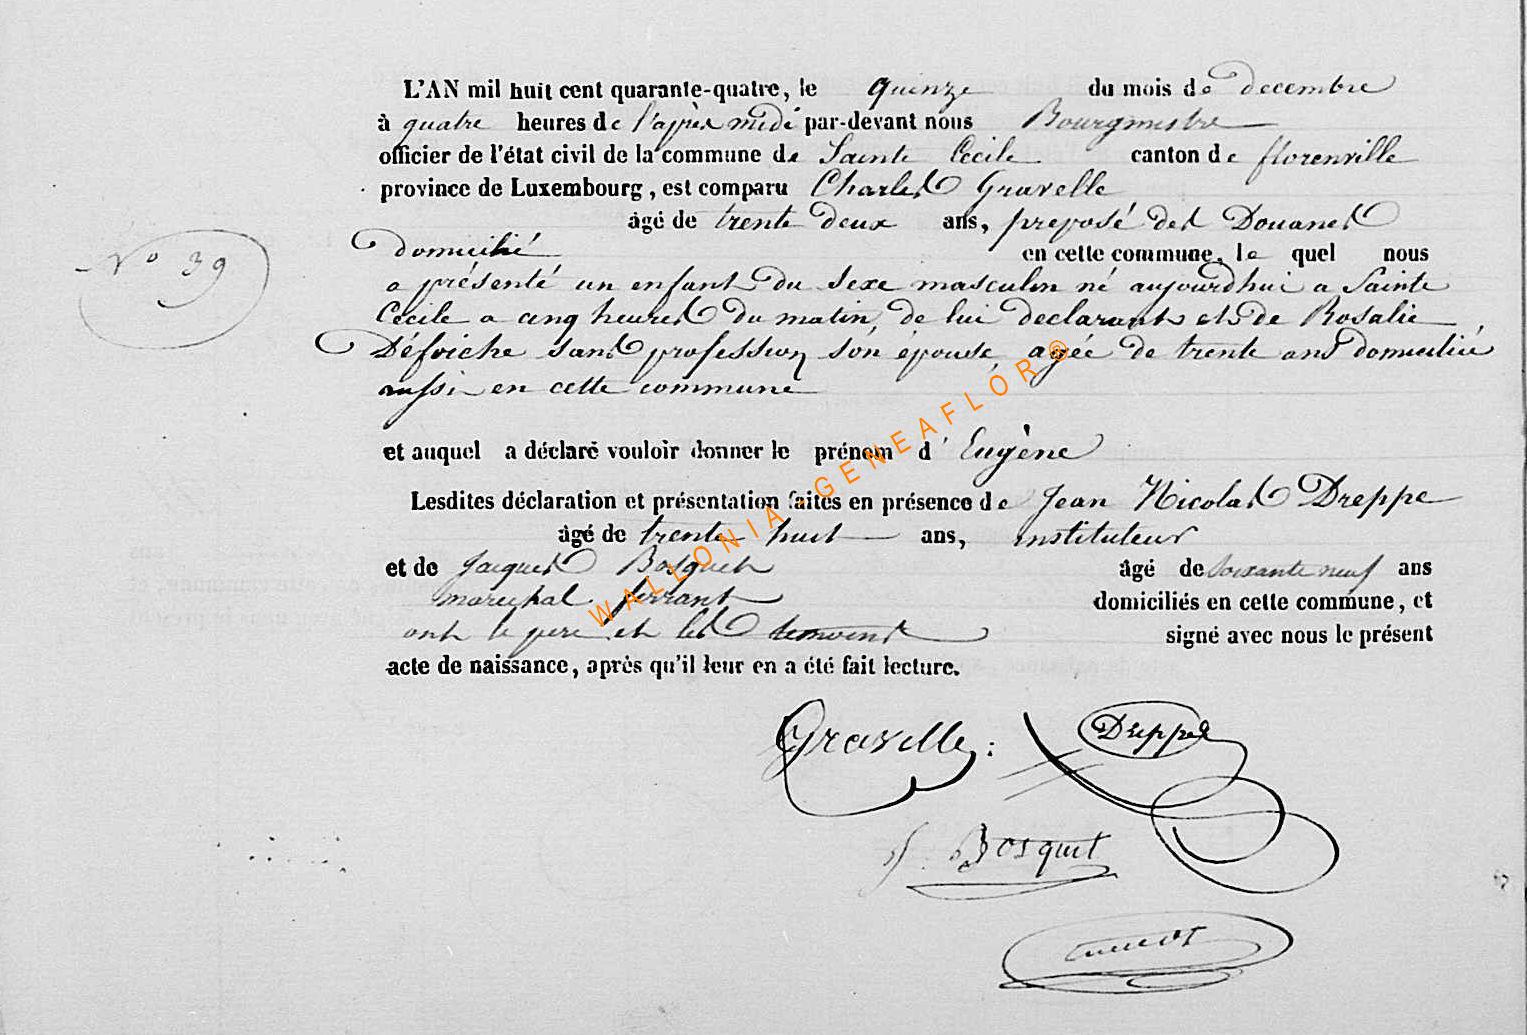 L'AN mil huit cent quarante-quatre, le quinze du mois de decembre
à quatre heures de l'après midi par-devant nous Bourgmestre
officier de l'état civil de la commune de Sainte Cécile canton de florenville
province de Luxembourg, est comparu Charles Gravelle
âgé de trente deux ans, preposé des Douanes
domicilié en cette commune, le quel nous
N° 39
a présenté un enfant du sexe masculin né aujourdhui a Sainte
Cécile a cinq heures du matin, de lui declarant et de Rosalie
Défoiche sans profession son épouse, agée de trente ans domiciliée
aussi en cette commune
et auquel a déclaré vouloir donner le prénom d' Eugène
Lesdites déclaration et présentation faites en présence de Jean Nicolas Dreppe
âgé de trente huit ans, instituteur
et de Jacques Bosquet âgé de soixante neuf ans
marechal ferrant domiciliés en cette commune, et
ont le père et les temoins signé avec nous le présent
acte de naissance, après qu'il leur en a été fait lecture.
WALLONIA-GENEAFLOR®
Gravelle
Dreppe
J. Bosquet